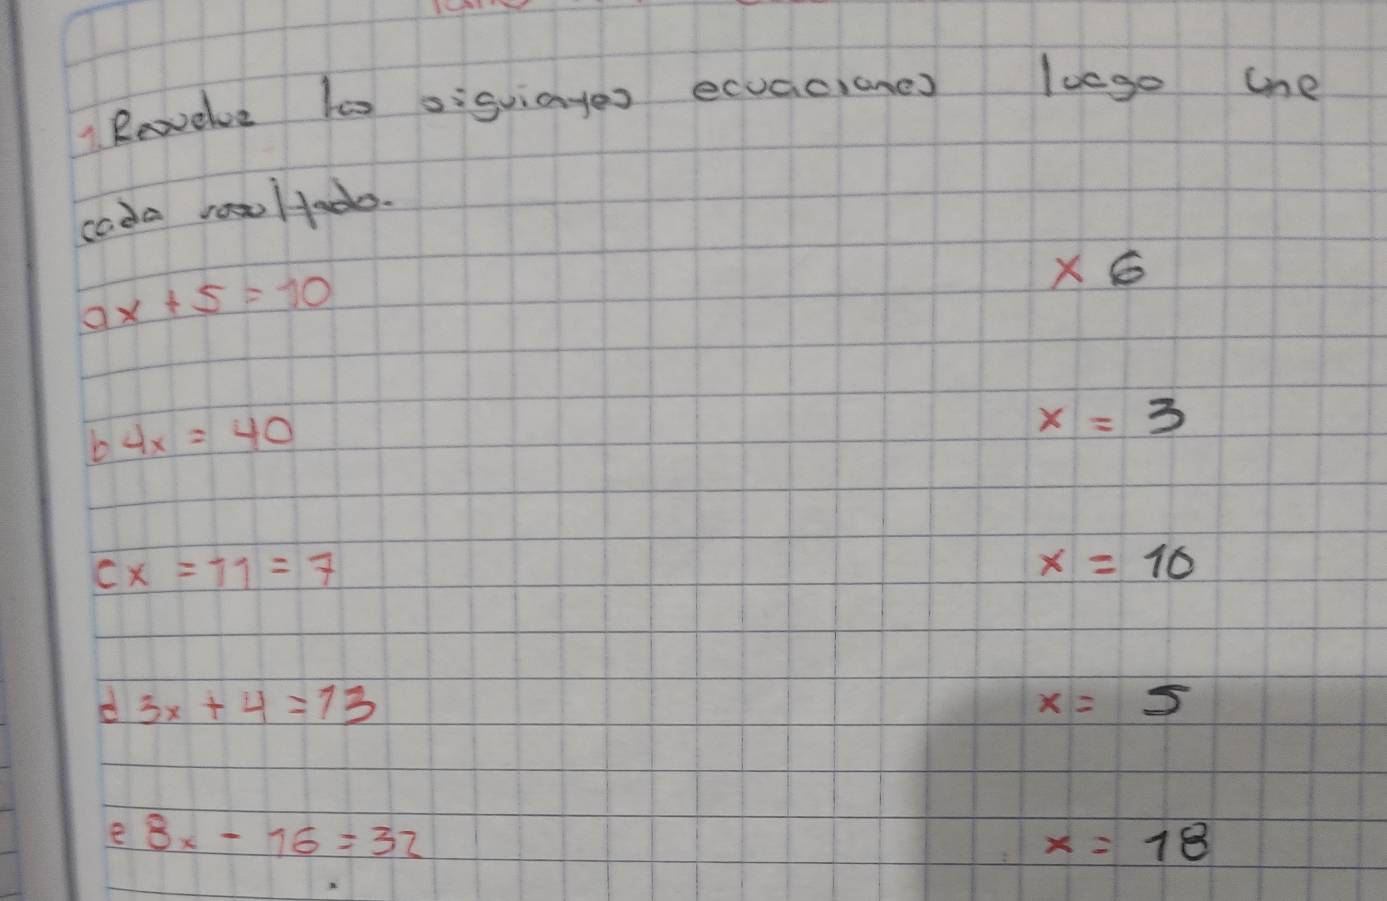 1. Resuelve las siguientes ecuaciones luego une
cada resultado.
a x + 5 = 10 x 6
b 4x = 40 x = 3
c x = 11 = 7 x = 10
d 3x + 4 = 13 x = 5
e 8x - 16 = 32 x = 18